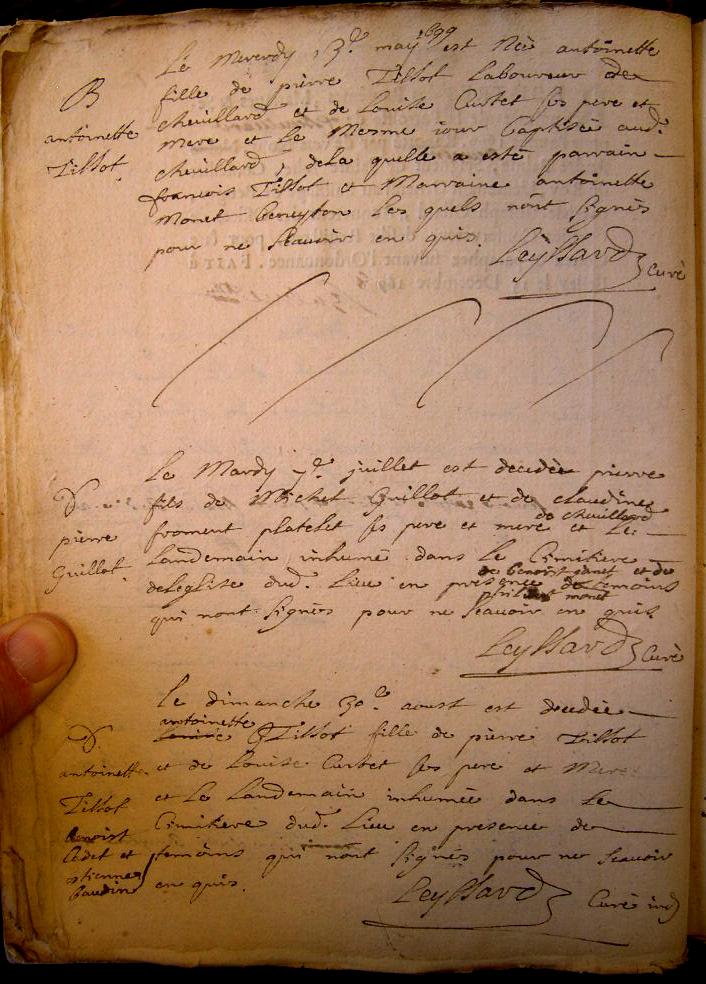 B
antoinette
Tissot.
Le Mercredy 13e. may 1699 est Née antoinette
fille de pierre Tissot Laboureur de
cheuillard et de Louise Curtet ses pere et
mere et le mesme iour baptisée aud.
cheuillard, de la quelle a esté parrain
francois Tissot et Marraine antoinette
monet les quels nont signés
pour ne scauoir en quis. Leyssard Curé
D.
pierre
Guillot.
Le Mardy 7e. juillet est decedée pierre
fils de Michel Guillot et de claudine
de cheuillard
froment platelet ses pere et mere et Le
Landemain inhumé dans le Cimitiere
de benoist janet et de
de leglise dud. Lieu en presence de temoins
monet
qui nont signés pour ne scauoir en quis.
Leyssard Curé
D.
antoinette
Tissot
benoist
Cadet et
etienne
baudin
Le dimanche 30e. aoust est decedée
antoinette
Louise Tissot fille de pierre Tissot
et de Louise Curtet ses pere et Mere
et Le Landemain inhumée dans Le
Cimitiere dud. Lieu en presence de
temoins qui nont signés pour ne scauoir
en quis. Leyssard Curé